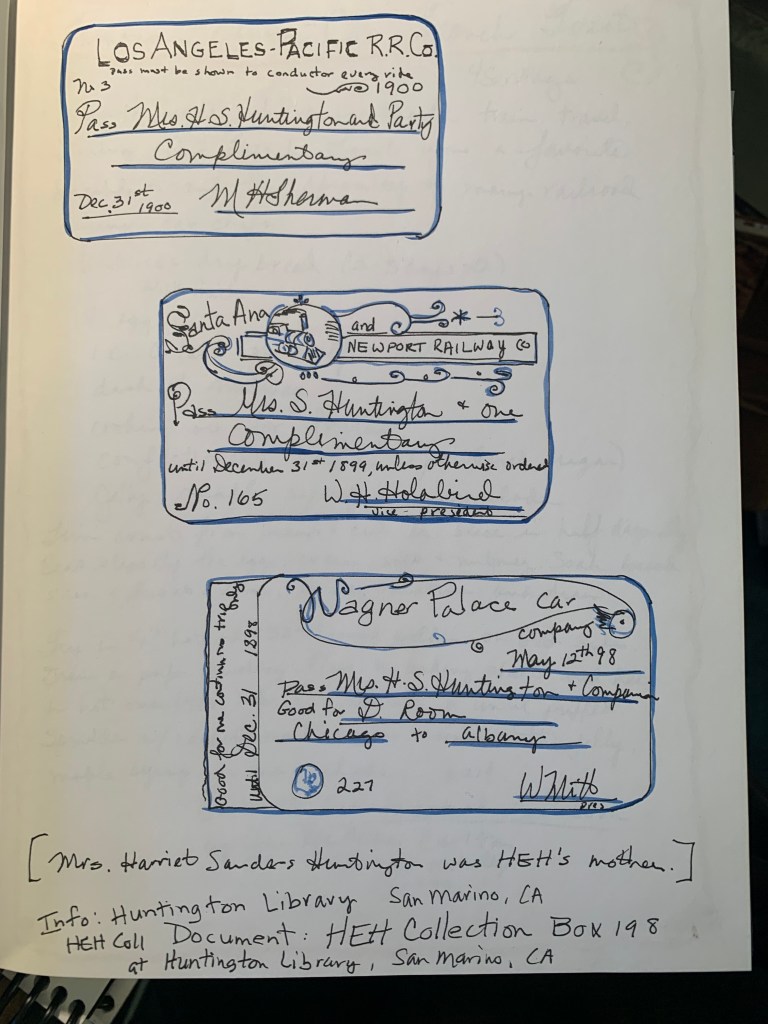 LOS ANGELES-PACIFIC R.R. Co.
pass must be shown to conductor every ride
No 3
1900
Pass Mrs. H. S. Huntington and Party
Complimentary
Dec. 31st 1900
M H Sherman
Santa Ana
and
NEWPORT RAILWAY Co
Pass Mrs. S. Huntington + one
Complimentary
until December 31st 1899, unless otherwise ordered
No. 165
W. H. Holabird
vice-president
Good for one continuous trip only
Until Dec. 31 1898
Wagner Palace Car
company
May 12th 98
Pass Mrs. H. S. Huntington + Companion
Good for D. Room
Chicago to Albany
227
pres
[Mrs. Harriet Sanders Huntington was HEH's mother.]
Info: Huntington Library San Marino, CA
HEH Coll Document: HEH Collection Box 198
at Huntington Library, San Marino, CA